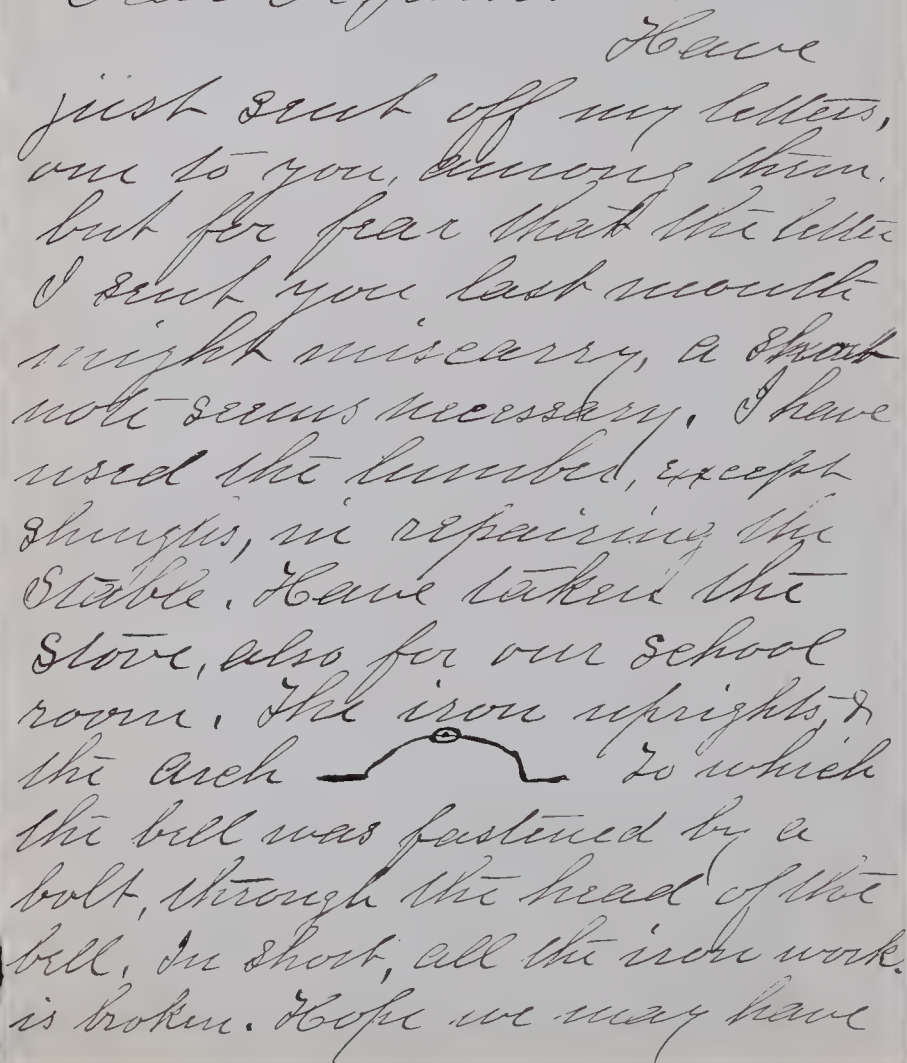 Have
just sent off my letters,
one to you, among them.
but for fear that the letter
I sent you last month
might miscarry, a short
note seems necessary. I have
used the lumber, except
shingles, in repairing the
Stable. Have taken the
Stove, also for our school
room. The iron uprights, &
the arch To which
the bell was fastened by a
bolt, through the head of the
bell. In short, all the iron work.
is broken. Hope we may have